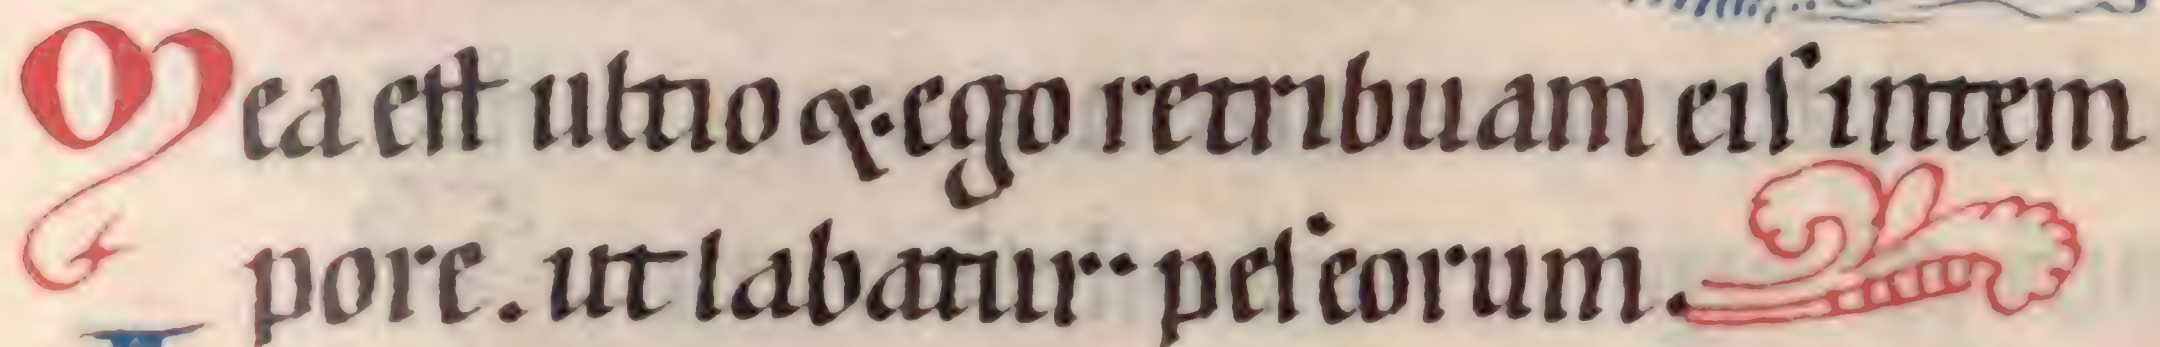 Mea eſt ultio q᷒. ego retribuam eiſ intem
pore. ut labatur peſ eorum.